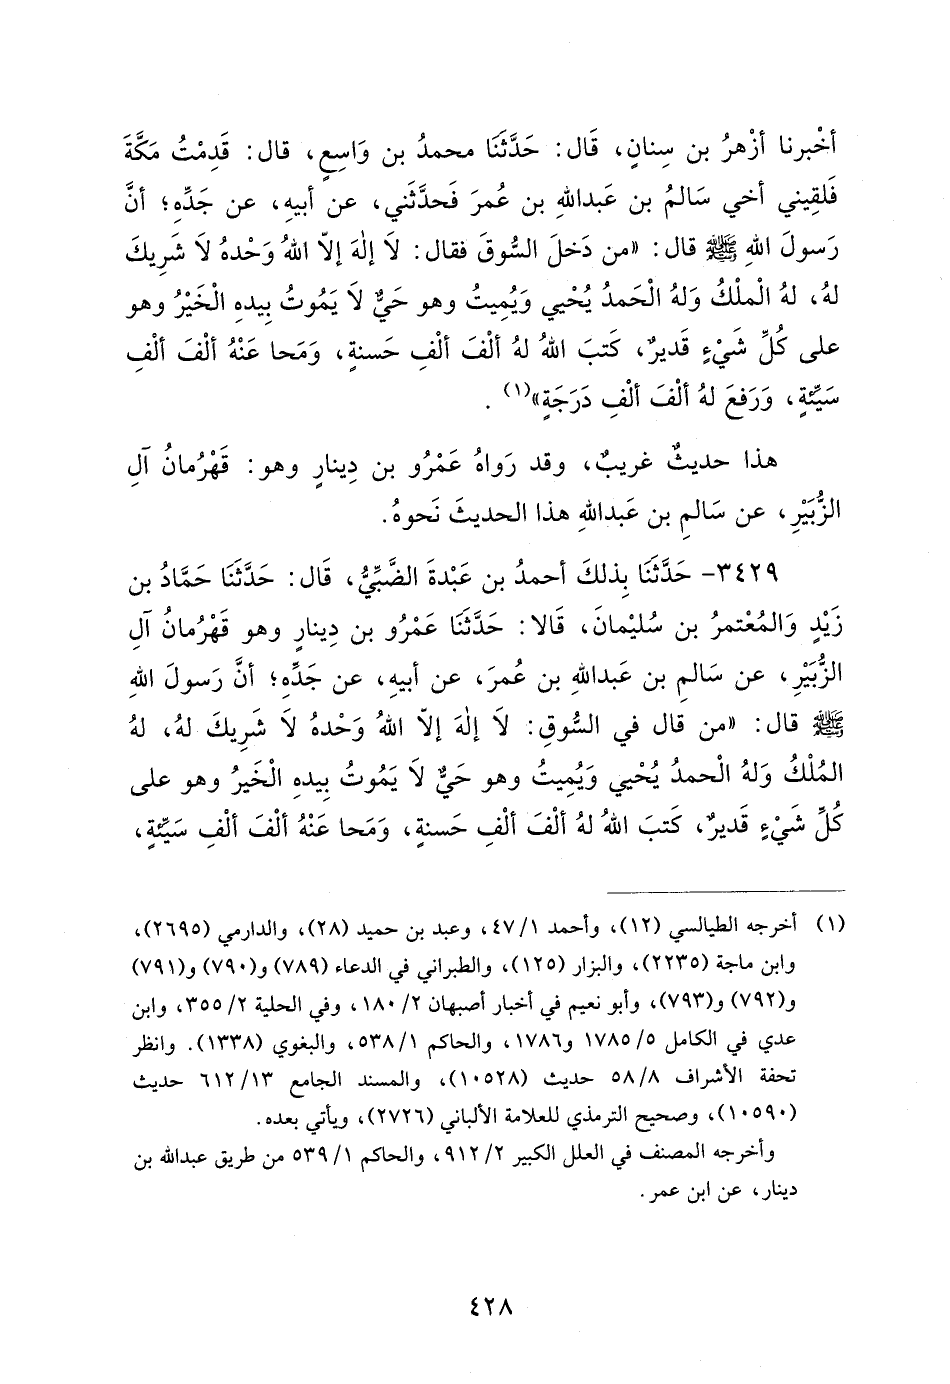 أخْبرنا أزْهرُ بن سِنانٍ، قَال: حَدَّثَنَا محمدُ بن وَاسِعٍ، قال: قَدِمْتُ مَكَّةَ
فَلَقِيني أخي سَالمُ بن عَبداللهِ بن عُمرَ فَحدَّثَني، عن أبيهِ، عن جَدِّهِ؛ أنَّ
رَسولَ اللهِ ﷺ قال: «من دَخلَ السُّوقَ فقال: لَا إلٰهَ إلّا اللهُ وَحْدهُ لَا شَرِيكَ
لهُ، لهُ الْملْكُ وَلهُ الْحَمدُ يُحْيي وَيُمِيتُ وهو حَيٌّ لَا يَمُوتُ بِيدهِ الْخَيْرُ وهو
على كُلِّ شَيْءٍ قَديرٌ، كَتبَ اللهُ لهُ ألْفَ ألْفِ حَسنةٍ، وَمَحا عَنْهُ ألْفَ ألْفِ
سَيِّئةٍ، وَرَفعَ لهُ ألْفَ ألْفِ دَرَجَةٍ»(١) .
هذا حديثٌ غريبٌ، وقد رَواهُ عَمْرُو بن دِينارٍ وهو: قَهْرُمانُ آلِ
الزُّبَيْرِ، عن سَالمِ بن عَبداللهِ هذا الحديثَ نَحوهُ.
٣٤٢٩- حَدَّثَنَا بِذلكَ أحمدُ بن عَبْدةَ الضَّبِّيُّ، قَال: حَدَّثَنَا حَمَّادُ بن
زَيْدٍ وَالمُعْتمرُ بن سُليْمانَ، قَالا: حَدَّثَنَا عَمْرُو بن دِينارٍ وهو قَهْرُمانُ آلِ
الزُّبَيْرِ، عن سَالمِ بن عَبداللهِ بن عُمرَ، عن أبيهِ، عن جَدِّهِ؛ أنَّ رَسولَ اللهِ
ﷺ قال: «من قال في السُّوقِ: لَا إلٰهَ إلّا اللهُ وَحْدهُ لَا شَرِيكَ لهُ، لهُ
المُلْكُ وَلهُ الْحمدُ يُحْيي وَيُمِيتُ وهو حَيٌّ لَا يَمُوتُ بِيدهِ الْخَيرُ وهو على
كُلِّ شَيْءٍ قَديرٌ، كَتبَ اللهُ لهُ ألْفَ ألْفِ حَسنةٍ، وَمَحا عَنْهُ ألْفَ ألْفِ سَيِّئةٍ،
(١) أخرجه الطيالسي (١٢)، وأحمد ٤٧/١، وعبد بن حميد (٢٨)، والدارمي (٢٦٩٥)،
وابن ماجة (٢٢٣٥)، والبزار (١٢٥)، والطبراني في الدعاء (٧٨٩) و(٧٩٠) و(٧٩١)
و(٧٩٢) و(٧٩٣)، وأبو نعيم في أخبار أصبهان ١٨٠/٢، وفي الحلية ٣٥٥/٢، وابن
عدي في الكامل ١٧٨٥/٥ و١٧٨٦، والحاكم ٥٣٨/١، والبغوي (١٣٣٨). وانظر
تحفة الأشراف ٥٨/٨ حديث (١٠٥٢٨)، والمسند الجامع ٦١٢/١٣ حديث
(١٠٥٩٠)، وصحيح الترمذي للعلامة الألباني (٢٧٢٦)، ويأتي بعده.
وأخرجه المصنف في العلل الكبير ٩١٢/٢، والحاكم ٥٣٩/١ من طريق عبدالله بن
دينار، عن ابن عمر.
٤٢٨